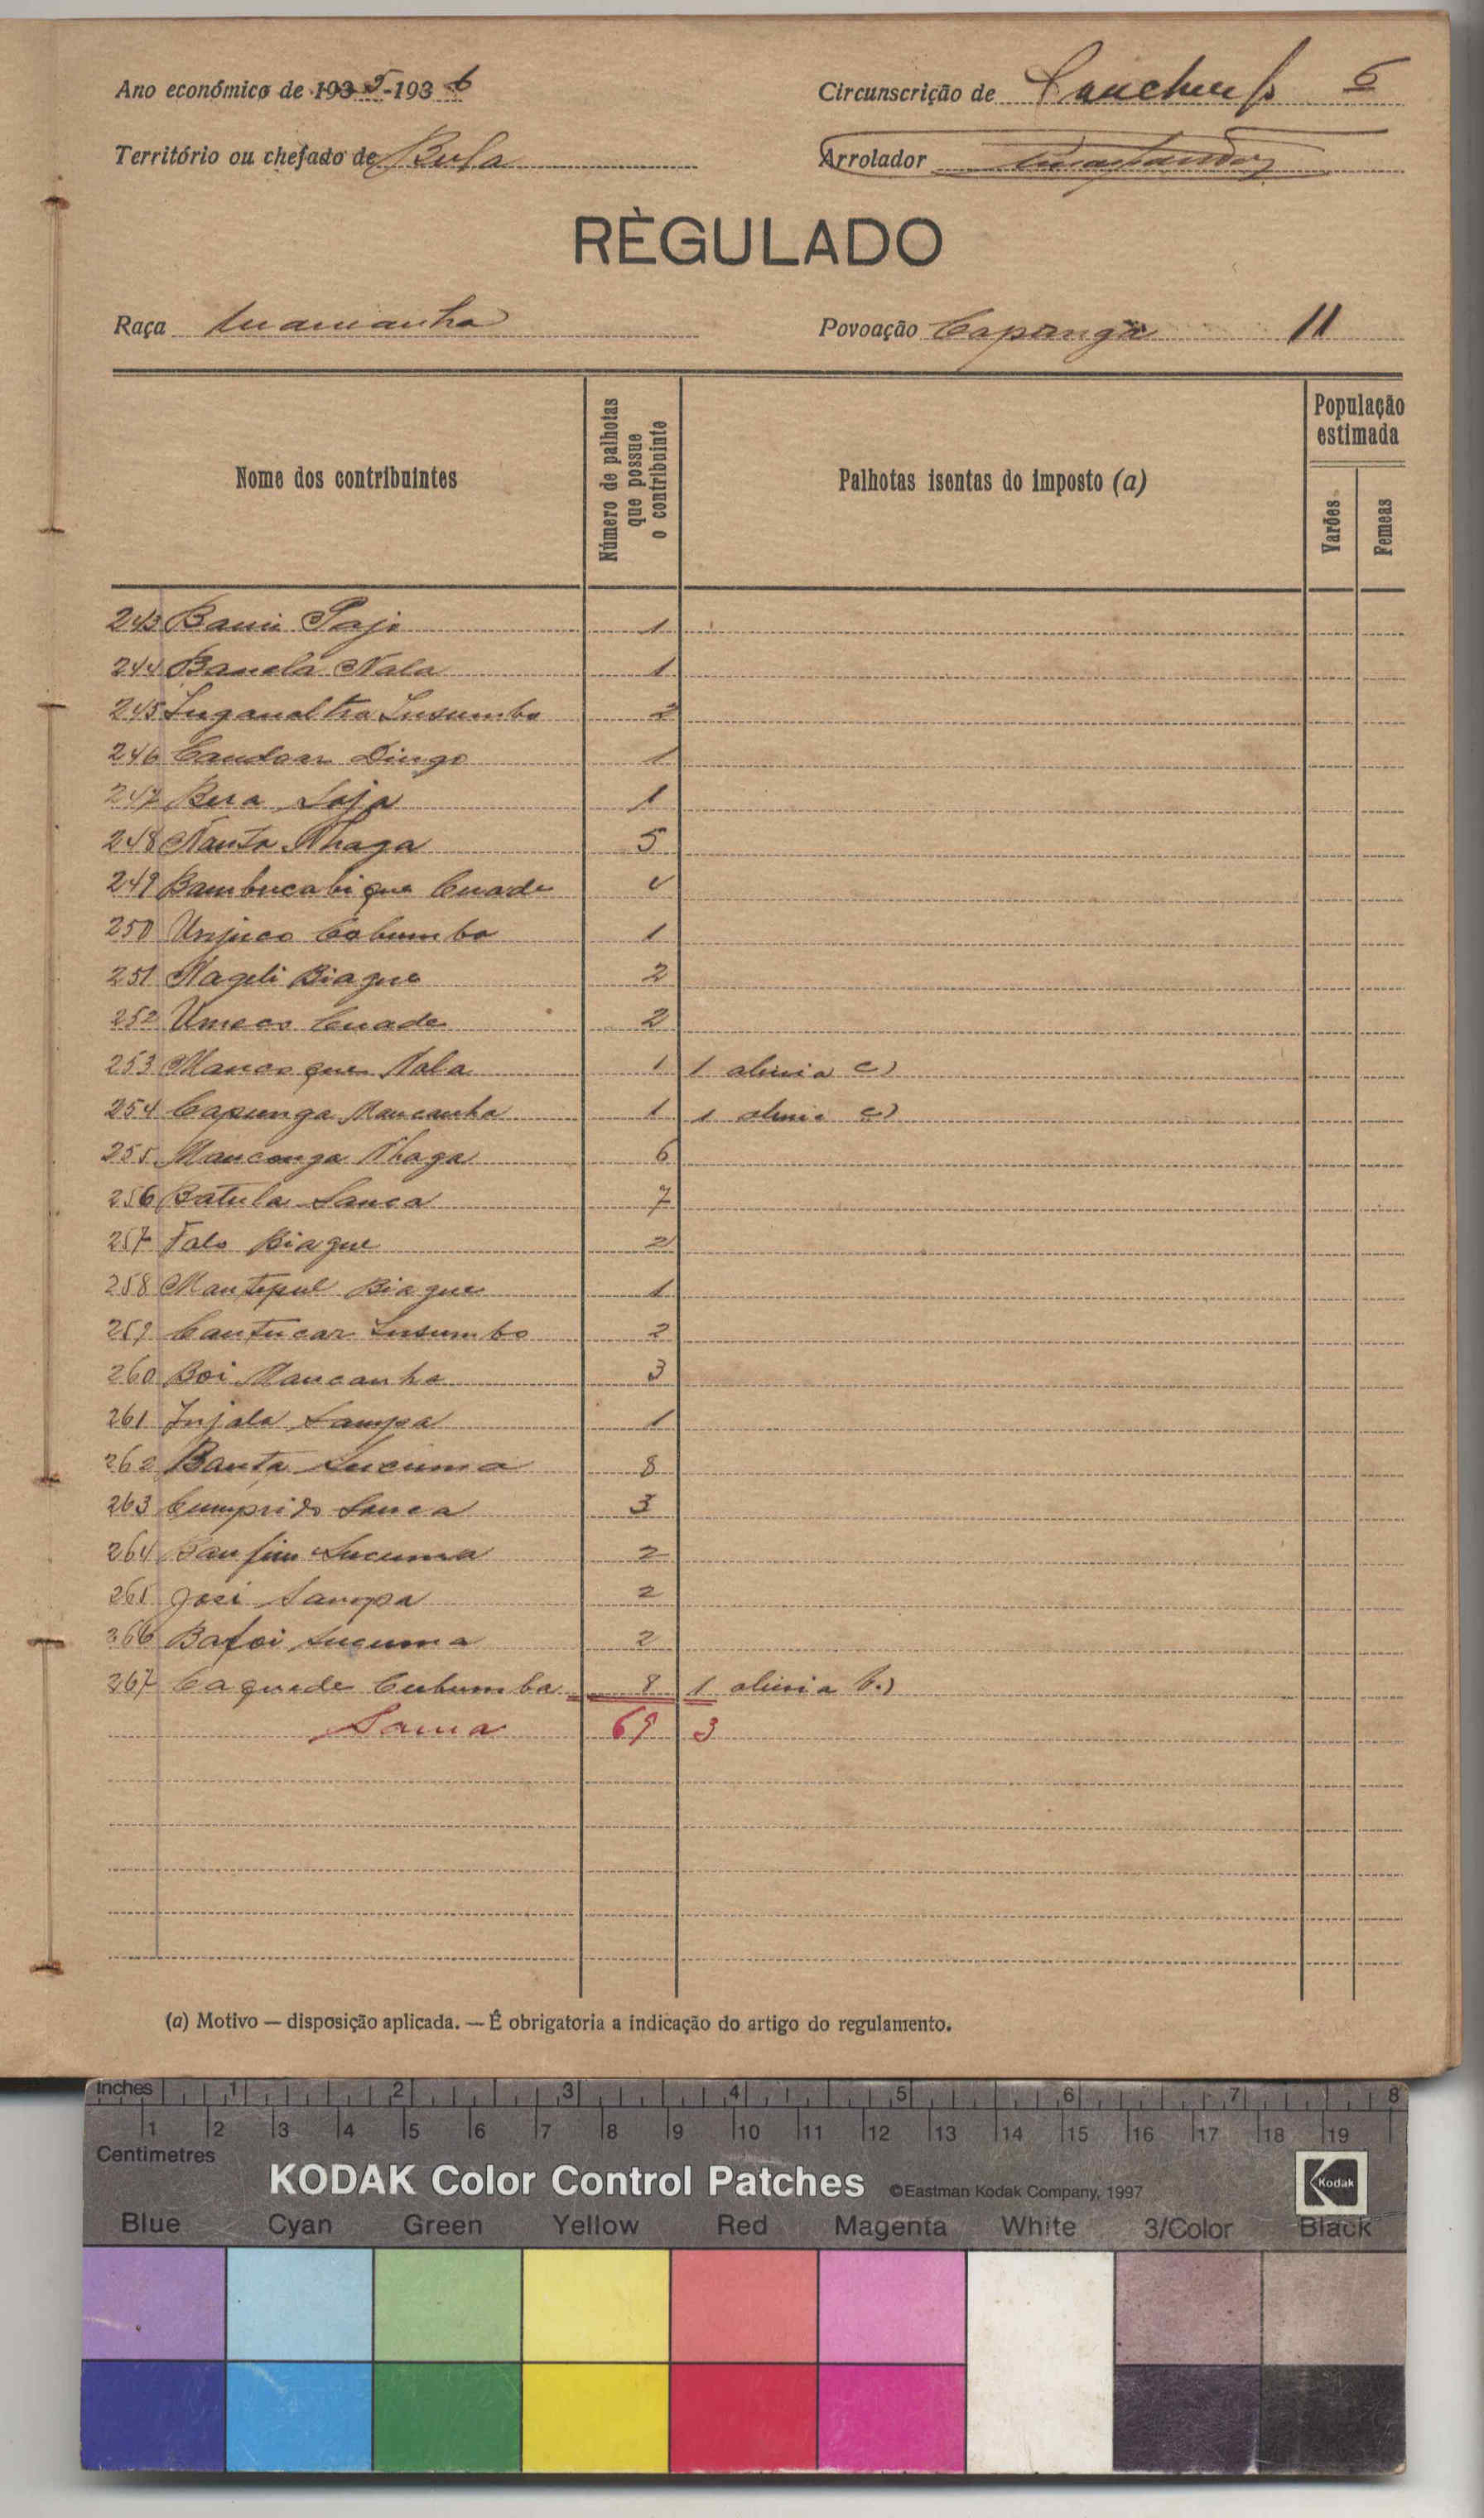 Ano económico de 1935-1936
Circunscrição de 6
Território ou chefado de Bula
Arrolador
RÈGULADO
Raça Mancanha
Povoação Capunga 11
Nome dos contribuintes
Número de palhotas que possue o contribuinte
Palhotas isentas do imposto (a)
População estimada
Varões
Femeas
243 1
244 Banela Nala 1
245 Insumbo 2
246 Dingo 1
247 Soja 1
248 Nhaga 5
249 Bambucabique Cuade
250 Cobumba 1
251 Nageli Biague 2
252 Umeco Cuade 2
253 Mancoque Nala 1 1 alinia c)
254 Capunga Mancanha 1 1 alinia c)
255 Manconga Nhaga 6
256 Batula Sanca 7
257 Falo Biague 2
258 Mantepul Biague 1
259 Cantucar Insumbo 2
260 Boi Mancanha 3
261 Injala Sampa 1
262 Banta Lucuma 8
263 Cumprido Sanca 3
264 Banfim Lucuma 2
265 José Sampa 2
266 Bafoi Lucuma 2
267 Caquede Cubumba 8 1 alinia b.)
Soma 69 3
(a) Motivo — disposição aplicada. — É obrigatoria a indicação do artigo do regulamento.
Inches 1 2 3 4 5 6 7 8
1 2 3 4 5 6 7 8 9 10 11 12 13 14 15 16 17 18 19
Centimetres
KODAK Color Control Patches ©Eastman Kodak Company, 1997 Kodak
Blue Cyan Green Yellow Red Magenta White 3/Color Black